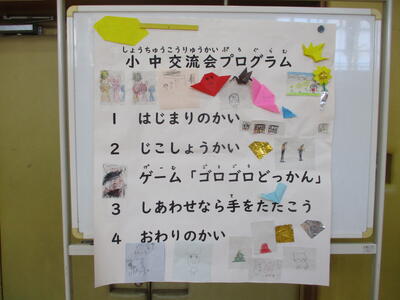 しょうちゅうこうりゅうかいぷろぐらむ
小中交流会プログラム
1 はじまりのかい
2 じこしょうかい
げーむ ごろごろ
ゲーム「ゴロゴロどっかん」
て
3 しあわせなら手をたたこう
4 おわりのかい